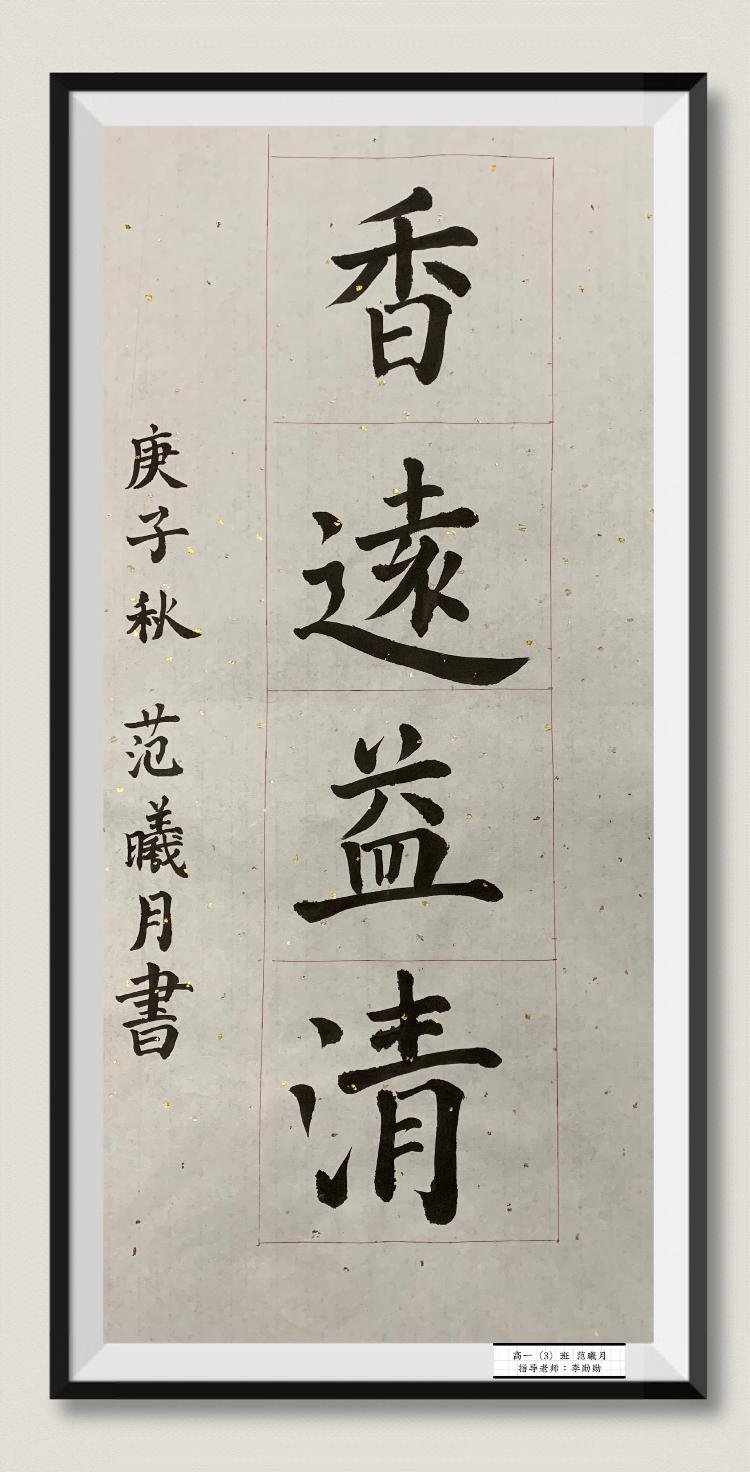 香遠益清
庚子秋 范曦月書
高一（3）班 范曦月
指导老师：李勋勋